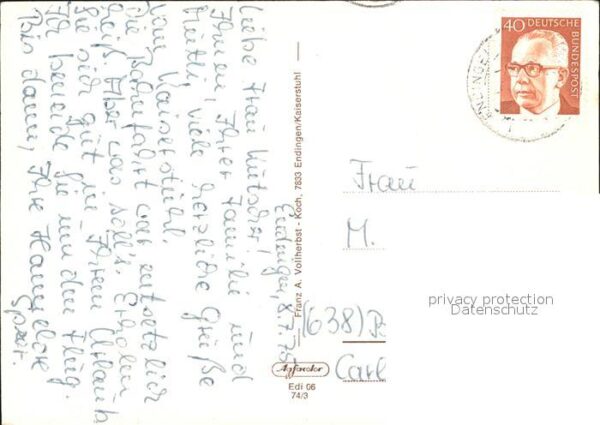 Endingen, 8.7.75
Liebe Frau Kutscher!
Ihnen, Ihrer Familie und
viele herzliche Grüße
vom Kaiserstuhl.
Die Bahnfahrt war entsetzlich
heiß. Aber was soll's. Erholen
Sie sich gut in Ihrem Urlaub
Ich beneide Sie um den Flug.
Bis dann, Ihre Hannelore
Franz A. Vollherbst - Koch, 7833 Endingen/Kaiserstuhl
Agfacolor
Edi 06
74/3
40 DEUTSCHE
BUNDESPOST
ENDINGEN
Frau
M.
(638)
Carl
privacy protection
Datenschutz